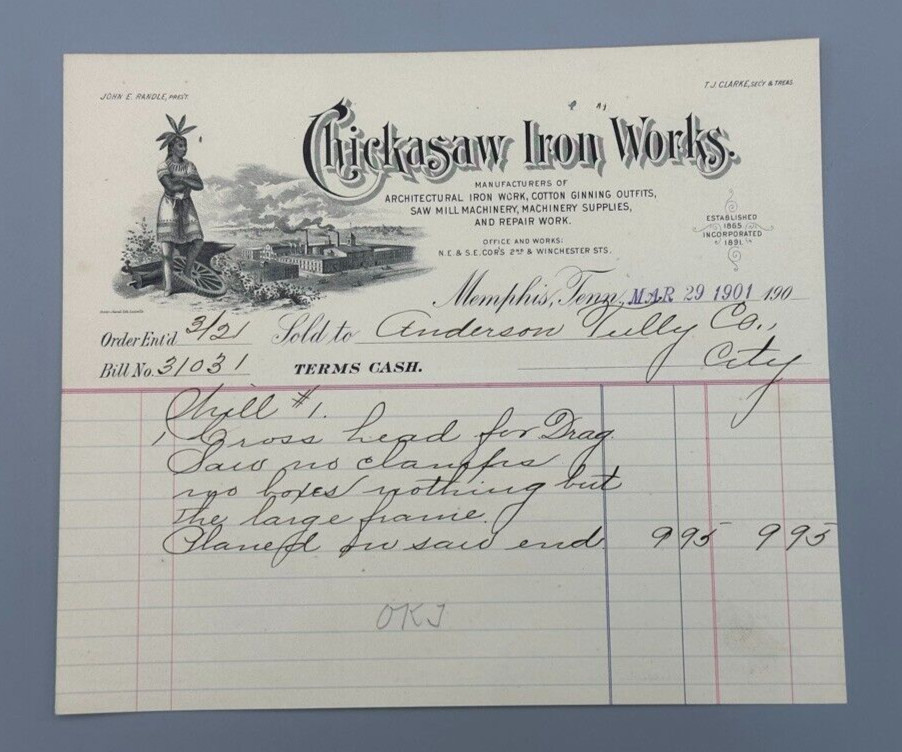 JOHN E. RANDLE, PRES'T.
T.J. CLARKE, SEC'Y & TREAS.
Chickasaw Iron Works.
MANUFACTURERS OF
ARCHITECTURAL IRON WORK, COTTON GINNING OUTFITS,
SAW MILL MACHINERY, MACHINERY SUPPLIES,
AND REPAIR WORK.
OFFICE AND WORKS:
N.E. & S.E. COR'S 2ND & WINCHESTER STS.
ESTABLISHED
1865
INCORPORATED
1891
Memphis, Tenn., MAR 29 1901 190
Order Ent'd 3/21 Sold to Anderson Tully Co.,
Bill No. 31031 TERMS CASH. City
Mill #1.
1 Cross head for Drag
Saw no clamps
no boxes nothing but
the large frame.
Planed on saw end. 995 995